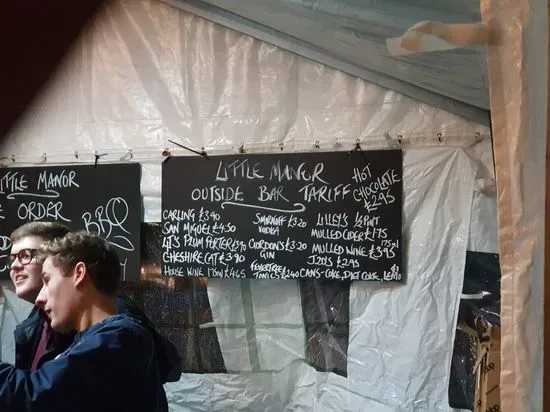 LITTLE MANOR
ORDER
BBQ
LITTLE MANOR
OUTSIDE BAR TARIFF
HOT
CHOCOLATE
£2.95
CARLING £3.90
SAN MIGUEL £4.50
TITS PLUM PORTER £3.90
CHESHIRE CAT £3.90
HOUSE WINE 175ml £4.65
SMIRNOFF £3.20
VODKA
GORDON'S £3.20
GIN
FEVERTREE
TONICS £2.40
LILLEY'S 1/2 PINT
MULLED CIDER £1.75
175ml
MULLED WINE £3.95
J2O'S £2.95
CANS-COKE, DIET COKE, LEMO